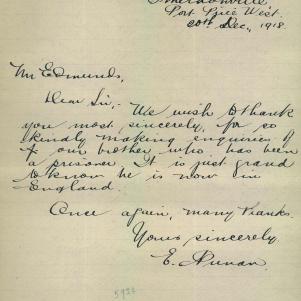 Port Pirie West.
20th Dec, 1918.
Mr Edmunds,
Dear Sir,- We wish to thank
you most sincerely, for so
kindly making enquiries
our brother who has been
a prisoner. It is just grand
to know he is now in
England.
Once again, many thanks.
Yours sincerely,
E.
5927